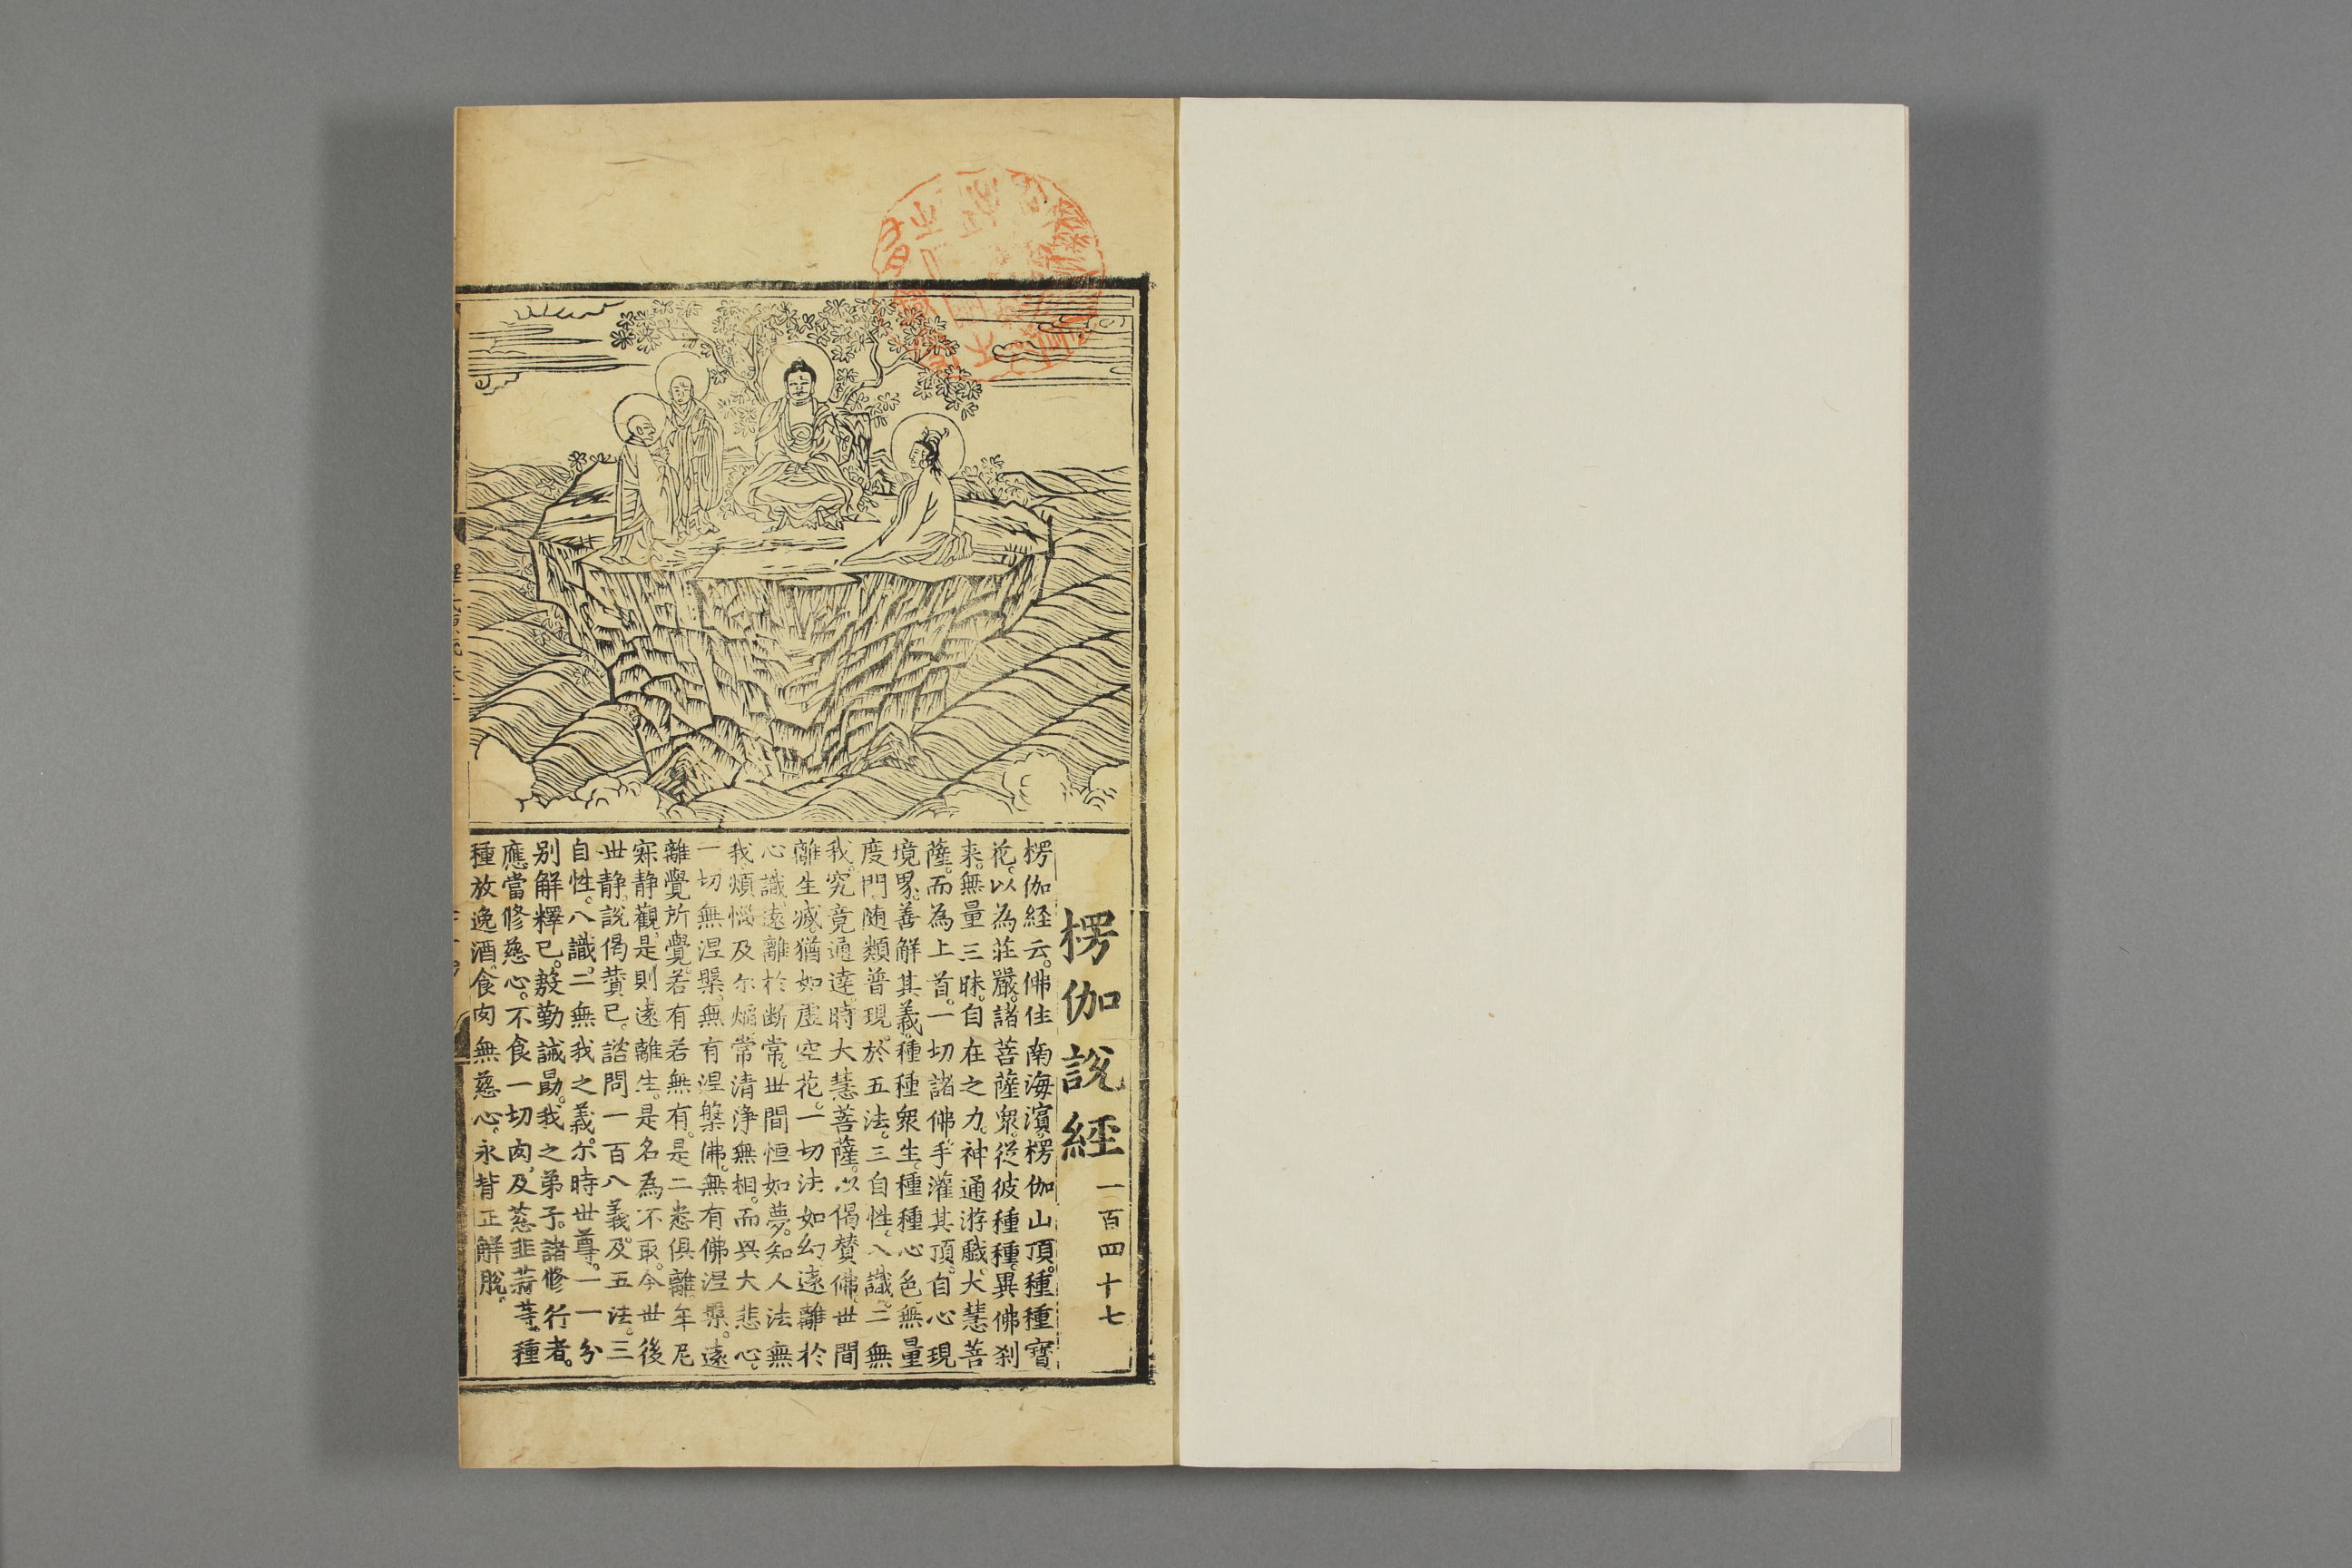 楞伽說經一百四十七
楞伽経云。佛住南海濵。楞伽山頂。種種寳
花。以為莊嚴。諸菩薩衆。従彼種種。異佛刹
来。無量三昧。自在之力。神通游戲。大慧菩
薩。而為上首。一切諸佛。手灌其頂。自心現
境界。善解其義。種種衆生。種種心色。無量
度門。随類普現。於五法。三自性。八識。二無
我。究竟通達。時大慧菩薩。以偈賛佛。世間
離生滅。猶如虛空花。一切法如幻。遠離於
心識。遠離於断常。世間恒如夢。知人法無
我。煩惱及尔焔。常清淨無相。而興大悲心。
一切無涅槃。無有涅槃佛。無有佛涅槃。遠
離覺所覺。若有若無有。是二悉俱離。牟尼
寂静觀。是則遠離生。是名為不取。今世後
世静。說偈賛已。諮問一百八義。及五法。三
自性。八識。二無我之義。尔時世尊。一一分
别解釋已。慇勤誡勗。我之弟子。諸修行者。
應當修慈心。不食一切肉。及葱韭蒜等。種
種放逸酒。食肉無慈心。永背正解脫。